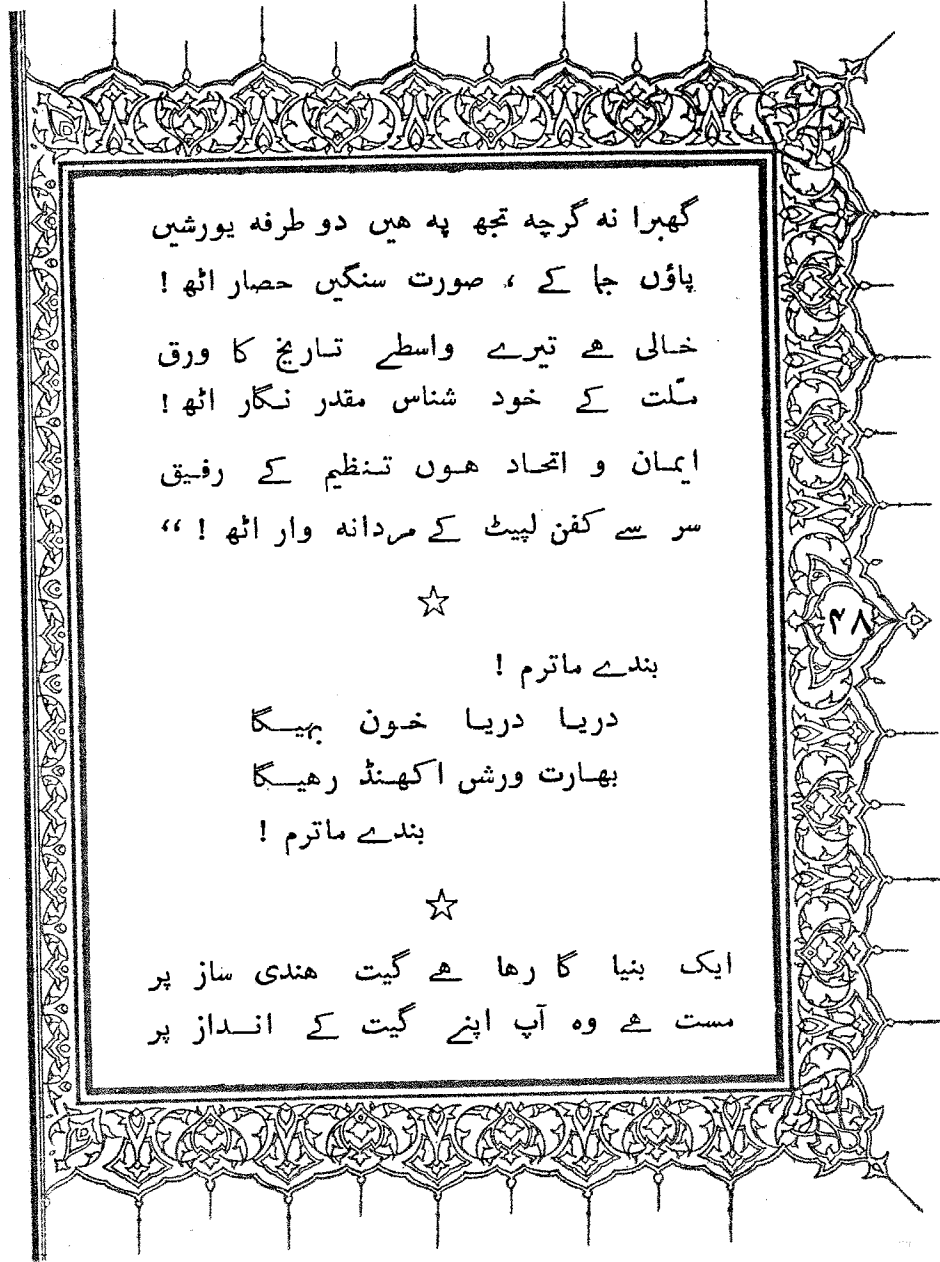 گھبرا نہ گرچہ تجھ پہ ھیں دو طرفہ یورشیں
پاؤں جما کے ، صورت سنگیں حصار اٹھ !
خالی ھے تیرے واسطے تاریخ کا ورق
ملّت کے خود شناس مقدر نگار اٹھ !
ایمان و اتحاد ھوں تنظیم کے رفیق
سر سے کفن لپیٹ کے مردانہ وار اٹھ ! “
☆
۴۸
بندے ماترم !
دریا دریا خون بہیگا
بھارت ورش اکھنڈ رھیگا
بندے ماترم !
☆
ایک بنیا گا رھا ھے گیت ھندی ساز پر
مست ھے وہ آپ اپنے گیت کے انداز پر